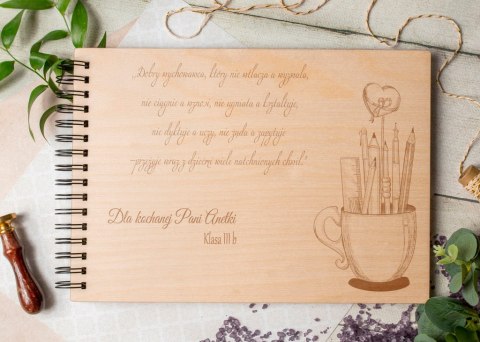 „Dobry wychowawca, który nie wtłacza a wyzwala,
nie ciągnie a wznosi, nie ugniata a kształtuje,
nie dyktuje a uczy, nie żąda a zapytuje
-przeżyje wraz z dziećmi wiele natchnionych chwil."
Dla kochanej Pani Anetki
Klasa III b